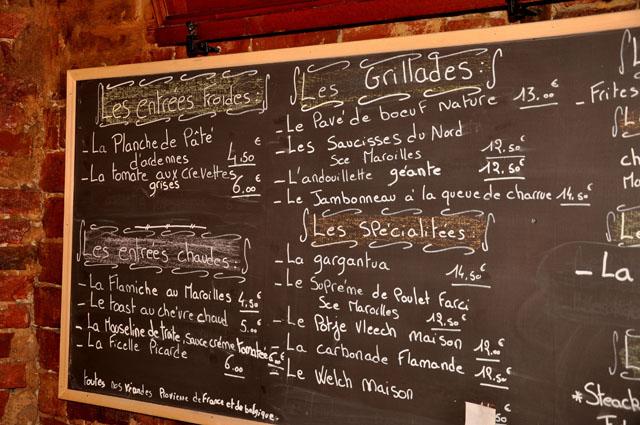 Les entrées froides.
- La Planche de Pâté
d'ardennes 4,50€
- La tomate aux crevettes
grises 6,00€
Les entrées chaudes.
- La Flamiche au Maroilles 4,50€
- Le toast au chèvre chaud 5,00€
- La Mousseline de truite, sauce crème tomatée 6,00€
- La Ficelle Picarde
6,00€
toutes nos viandes Provienne de France et de belgique.
Les Grillades.
- Le Pavé de boeuf nature 13,00€
- Les Saucisses du Nord
Sce Maroilles 12,50€
- L'andouillette géante 12,50€
- Le Jambonneau à la queue de charrue 14,50€
Les Spécialitées.
- La gargantua 14,50€
- Le Suprème de Poulet Farci
Sce Maroilles 12,50€
- Le Potje Vleech maison 12,00€
- La carbonade Flamande 12,50€
- Le Welch maison
50
L
- Frites
ch
Ma
- La
*Steack